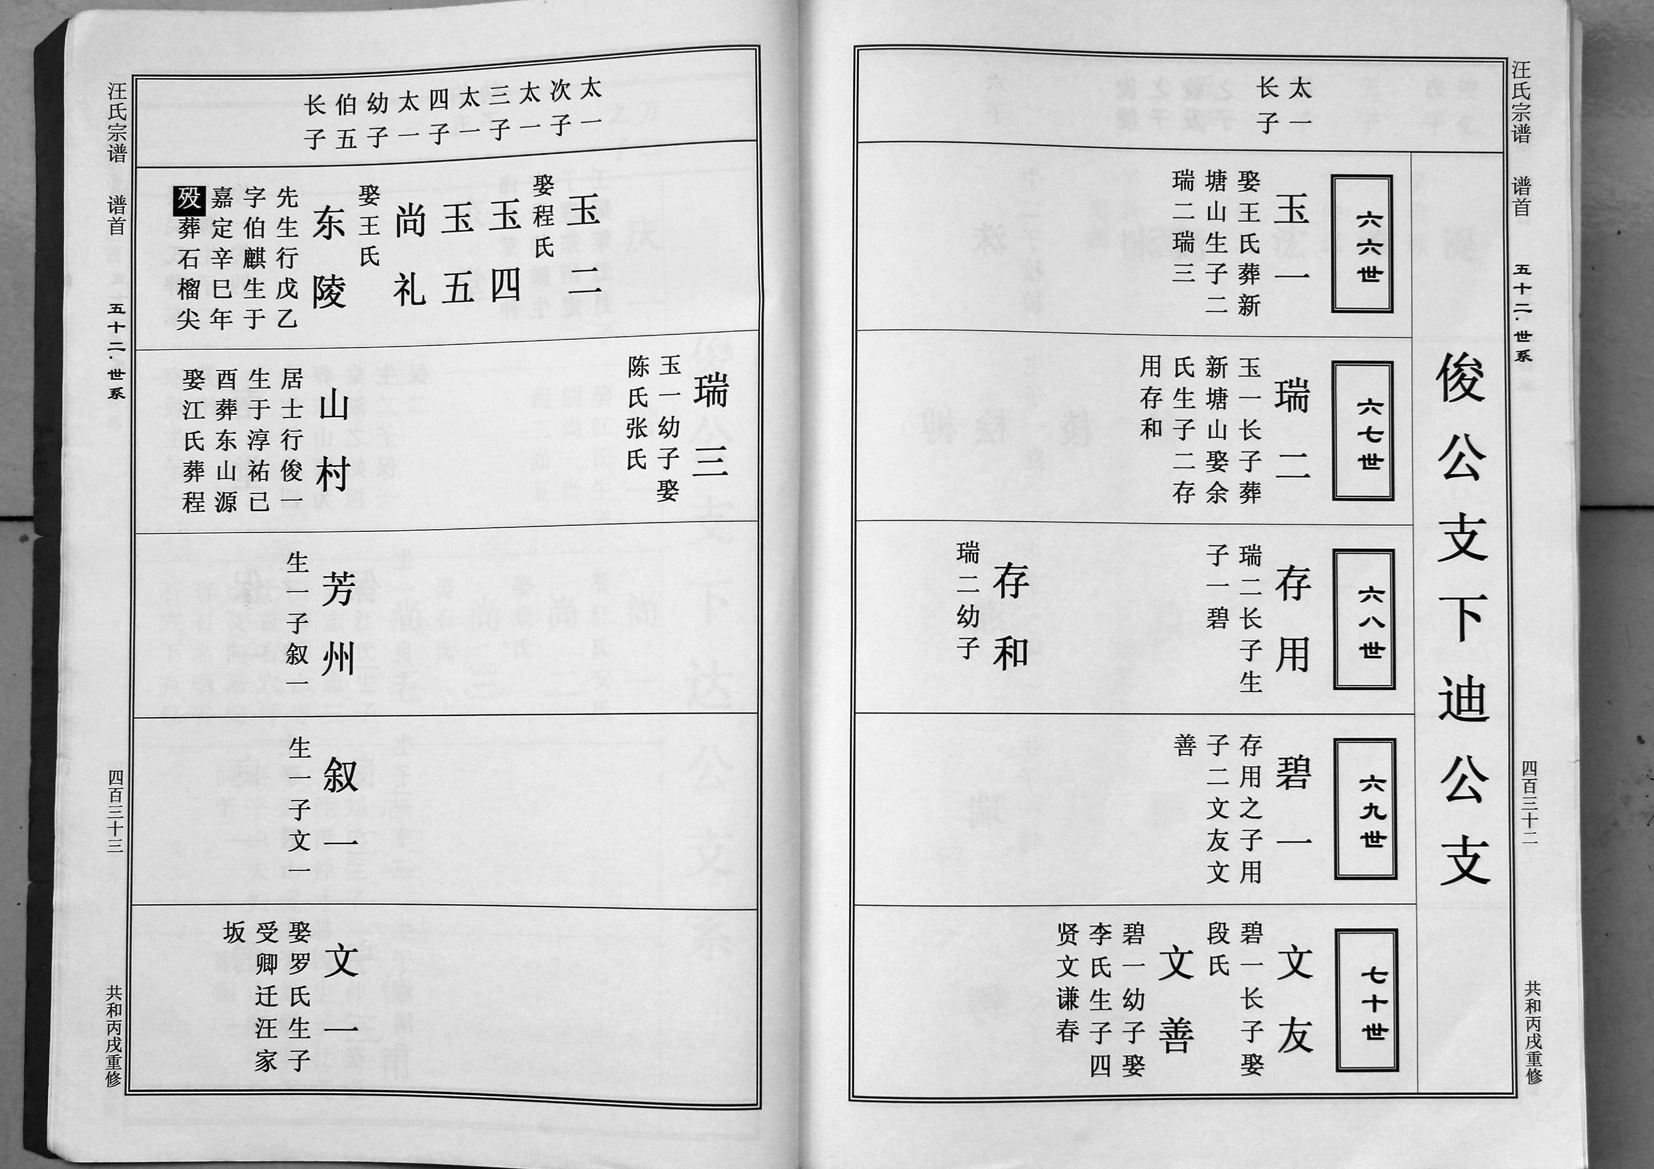 汪氏宗谱 谱首 五十二·世系 四百三十二 共和丙戌重修
俊公支下迪公支
六六世
六七世
六八世
六九世
七十世
太一
长子
玉一
娶王氏葬新
塘山生子二
瑞二瑞三
瑞二
玉一长子葬
新塘山娶余
氏生子二存
用存和
存用
瑞二长子生
子一碧
存和
瑞二幼子
碧一
存用之子用
子二文友文
善
文友
碧一长子娶
段氏
文善
碧一幼子娶
李氏生子四
贤文谦春
太一
次子
太一
三子
太一
四子
太一
幼子
伯五
长子
玉二
娶程氏
玉四
玉五
尚礼
娶王氏
东陵
先生行戊乙
字伯麒生于
嘉定辛巳年
殁葬石榴尖
瑞三
玉一幼子娶
陈氏张氏
山村
居士行俊一
生于淳祐已
酉葬东山源
娶江氏葬程
芳州
生一子叙一
叙一
生一子文一
文一
娶罗氏生子
受卿迁汪家
坂
汪氏宗谱 谱首 五十二·世系 四百三十三 共和丙戌重修